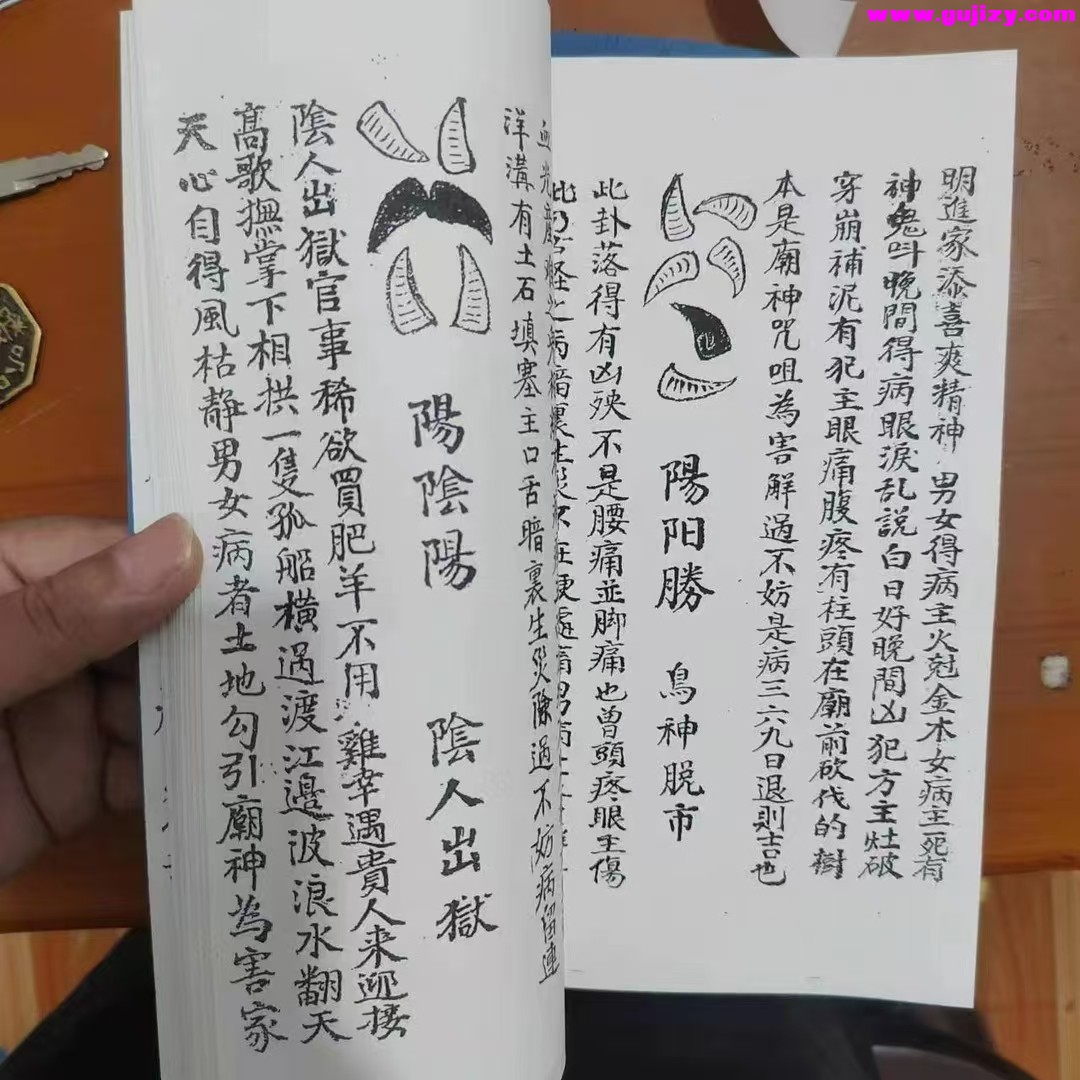 www.gujizy.com
明進家添喜爽精神 男女得病主火尅金木女病主死有
神鬼呌晚間得病眼淚乱說白日好晚間凶犯方主灶破
穿崩補泥有犯主眼痛腹疼有柱頭在廟前砍伐的樹
本是廟神咒咀為害解過不妨是病三六九日退則吉也
陽阳勝 鳥神脱市
此卦落得有凶殃不是腰痛並脚痛也曾頭疼眼主傷
洋溝有土石填塞主口舌暗裏生災除過不妨病留連
陽陰陽 陰人出獄
陰人出獄官事稀欲買肥羊不用雞幸遇貴人来迎接
高歌撫掌下相拱一隻孤船橫過渡江邊波浪水翻天
天心自得風枯静男女病者土地勾引廟神為害家